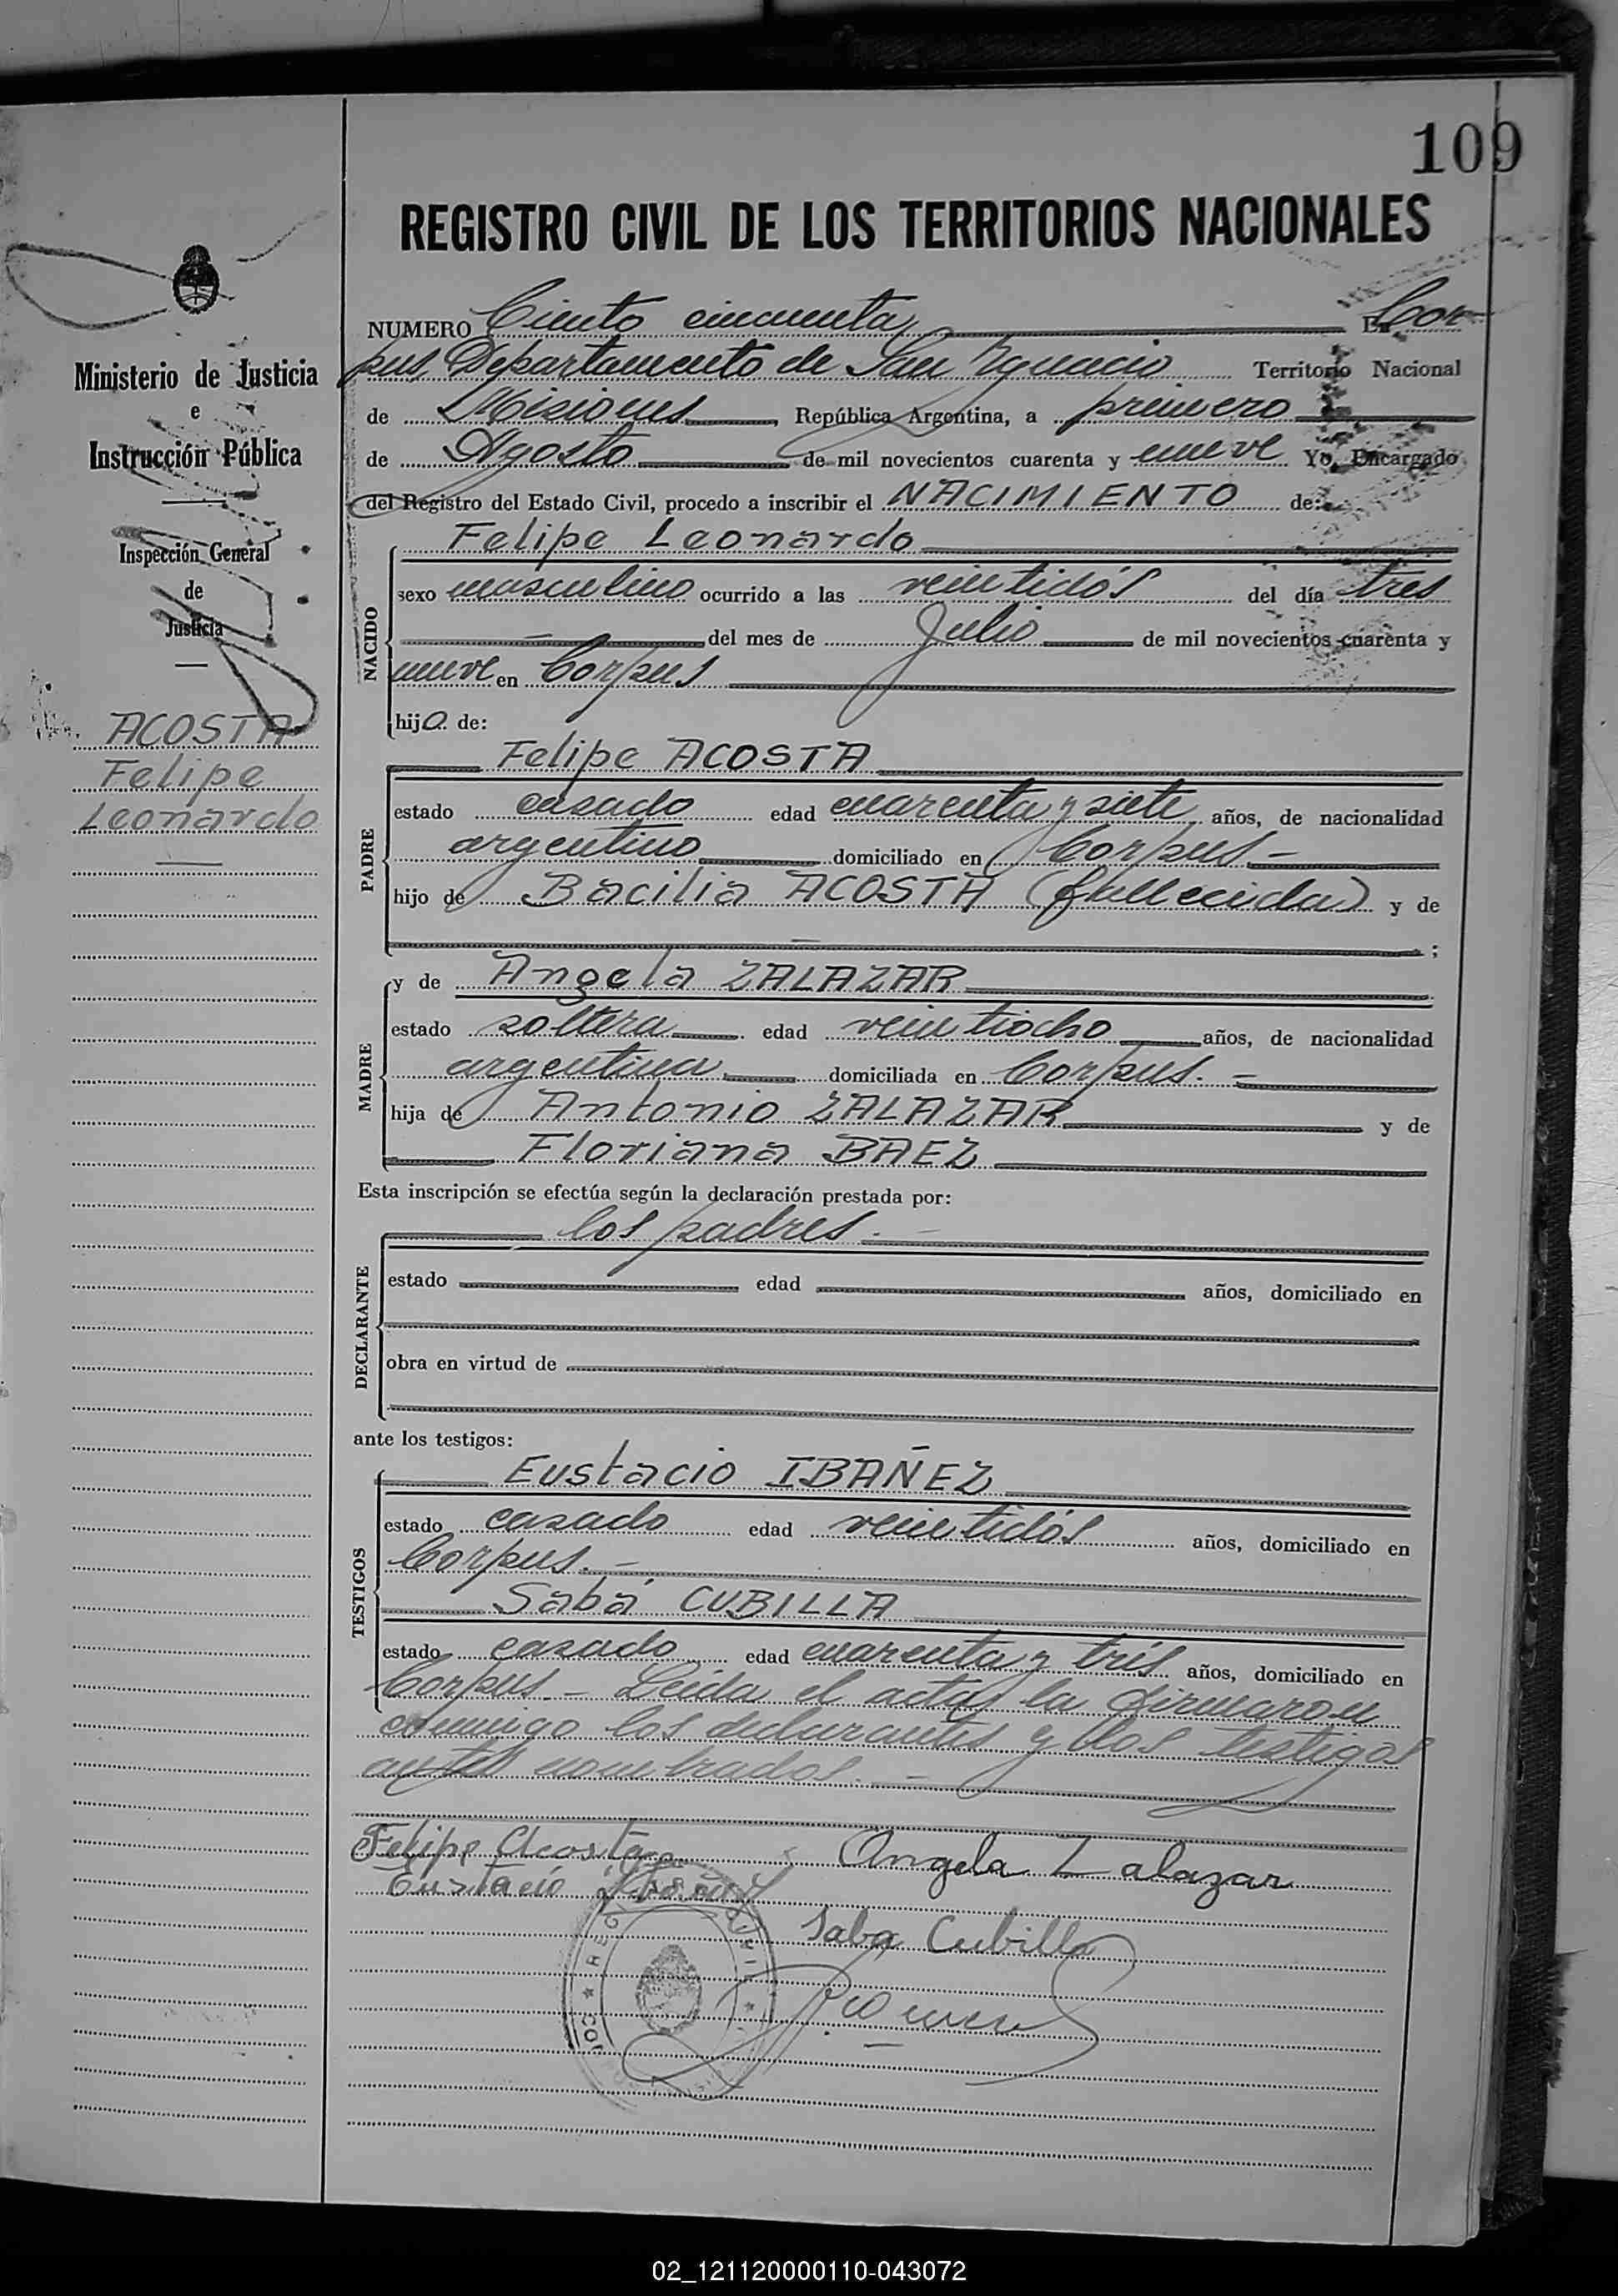 109
REGISTRO CIVIL DE LOS TERRITORIOS NACIONALES
Ministerio de Justicia
e
Instrucción Pública
Inspección General
de
Justicia
ACOSTA
Felipe
Leonardo
NUMERO Ciento cincuenta En Cor
pus, Departamento de San Ygnacio Territorio Nacional
de Misiones, República Argentina, a primero
de Agosto de mil novecientos cuarenta y nueve Yo, Encargado
del Registro del Estado Civil, procedo a inscribir el NACIMIENTO de:
Felipe Leonardo
NACIDO
sexo masculino ocurrido a las veintidós del día tres
del mes de Julio de mil novecientos cuarenta y
nueve en Corpus
hijo de:
Felipe ACOSTA
PADRE
estado casado edad cuarenta y siete años, de nacionalidad
argentino domiciliado en Corpus –
hijo de Bacilia ACOSTA (fallecida) y de
;
y de Angela ZALAZAR
MADRE
estado soltera edad veintiocho años, de nacionalidad
argentina domiciliada en Corpus. –
hija de Antonio ZALAZAR y de
Floriana BAEZ
Esta inscripción se efectúa según la declaración prestada por:
los padres. –
DECLARANTE
estado edad años, domiciliado en
obra en virtud de
ante los testigos:
Eustacio IBAÑEZ
TESTIGOS
estado casado edad veintidós años, domiciliado en
Corpus. –
Sabá CUBILLA
estado casado edad cuarenta y trés años, domiciliado en
Corpus. – Leida el acta, la firmaron
conmigo los declarantes y los testigos
antes nombrados. –
Felipe Acosta Angela Zalazar
Eustacio Ibañez
Saba Cubilla
02_121120000110-043072